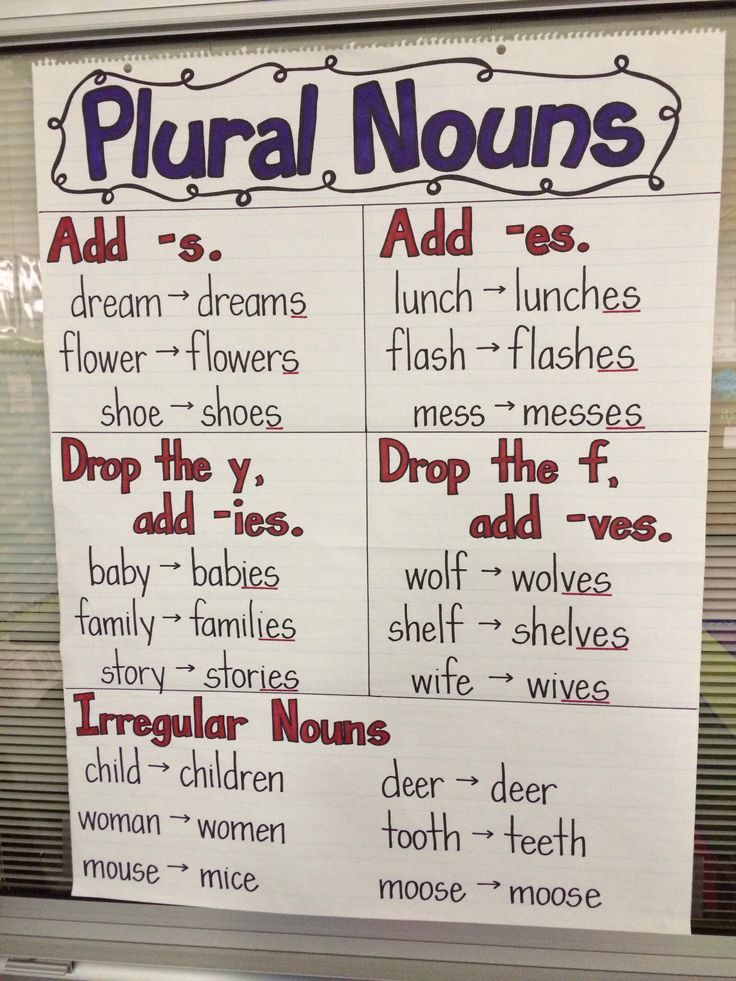 Plural Nouns
Add -s.
dream → dreams
flower → flowers
shoe → shoes
Add -es.
lunch → lunches
flash → flashes
mess → messes
Drop the y,
add -ies.
baby → babies
family → families
story → stories
Drop the f,
add -ves.
wolf → wolves
shelf → shelves
wife → wives
Irregular Nouns
child → children
woman → women
mouse → mice
deer → deer
tooth → teeth
moose → moose